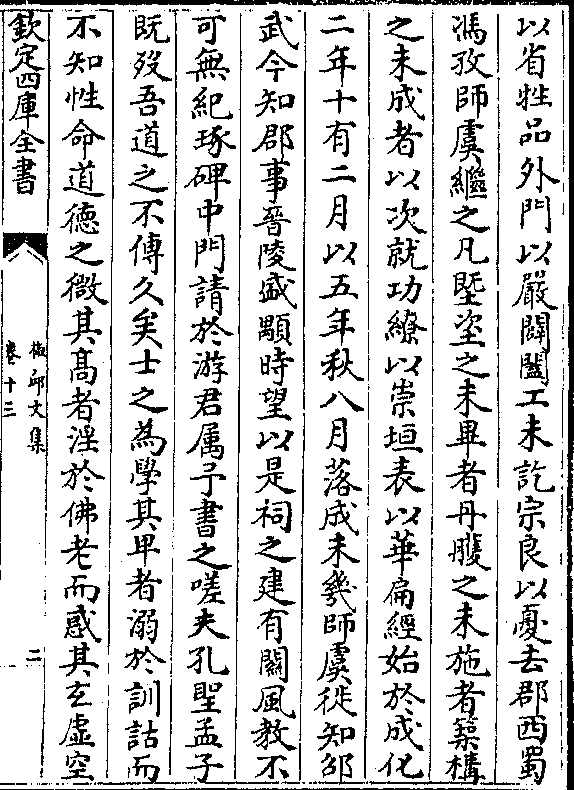 以省牲品外門以嚴闢闔工未訖宗良以憂去郡西蜀
馮孜師虞繼之凡塈垐之未畢者丹雘之未施者築構
之未成者以次就功繚以崇垣表以華扁經始於成化
二年十有二月以五年秋八月落成未幾師虞徙知邵
武今知郡事晉陵盛顒時望以是祠之建有關風教不
可無紀琢碑中門請於游君属予書之嗟夫孔聖孟子
既歿吾道之不傳久矣士之為學其卑者溺於訓詁而
不知性命道德之微其髙者淫於佛老而惑其玄虛空
欽定四庫全書
椒邱文集
卷十三
二